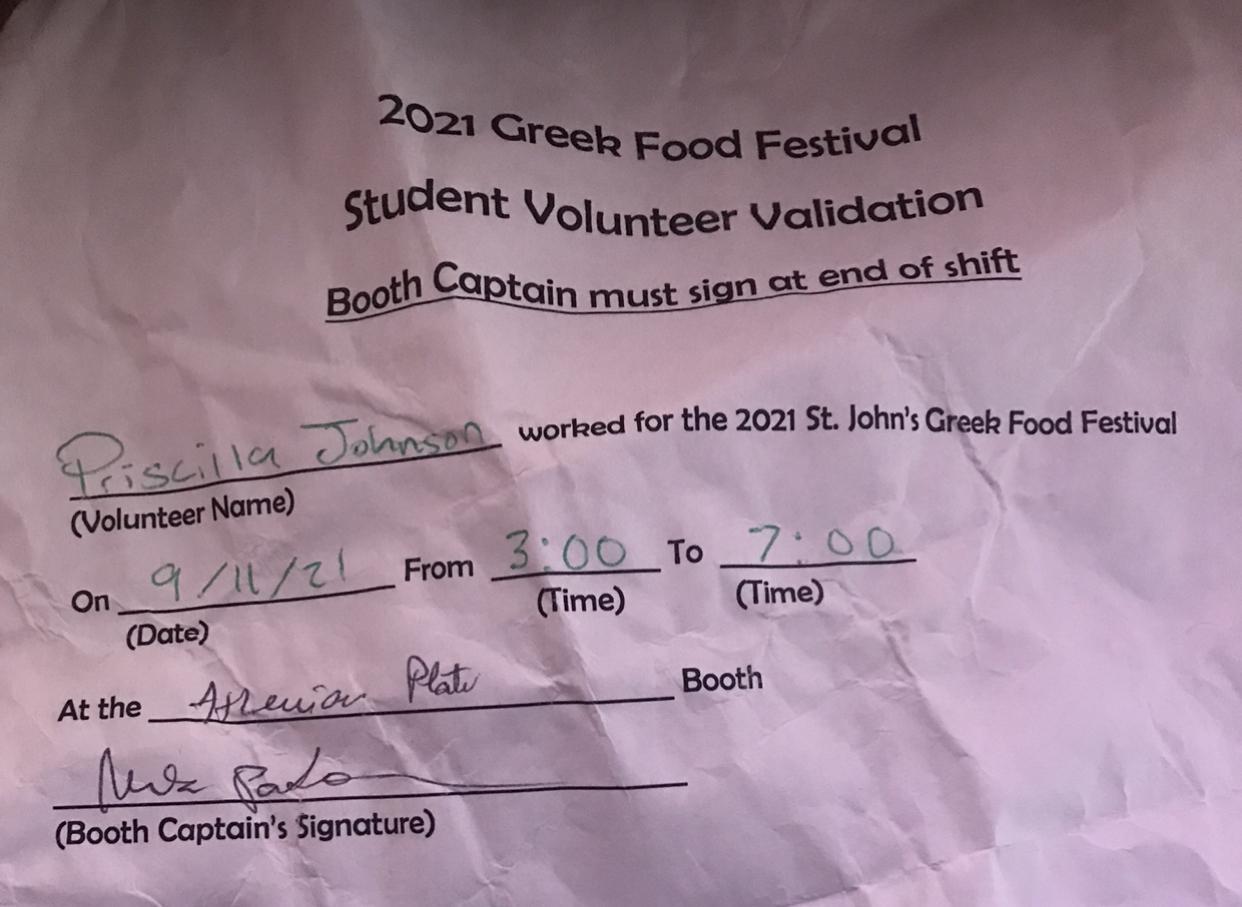 2021 Greek Food Festival
Student Volunteer Validation
Booth Captain must sign at end of shift
Priscilla Johnson worked for the 2021 St. John's Greek Food Festival
(Volunteer Name)
On 9/11/21 From 3:00 To 7:00
(Date) (Time) (Time)
At the Athenian Plate Booth
(Booth Captain's Signature)